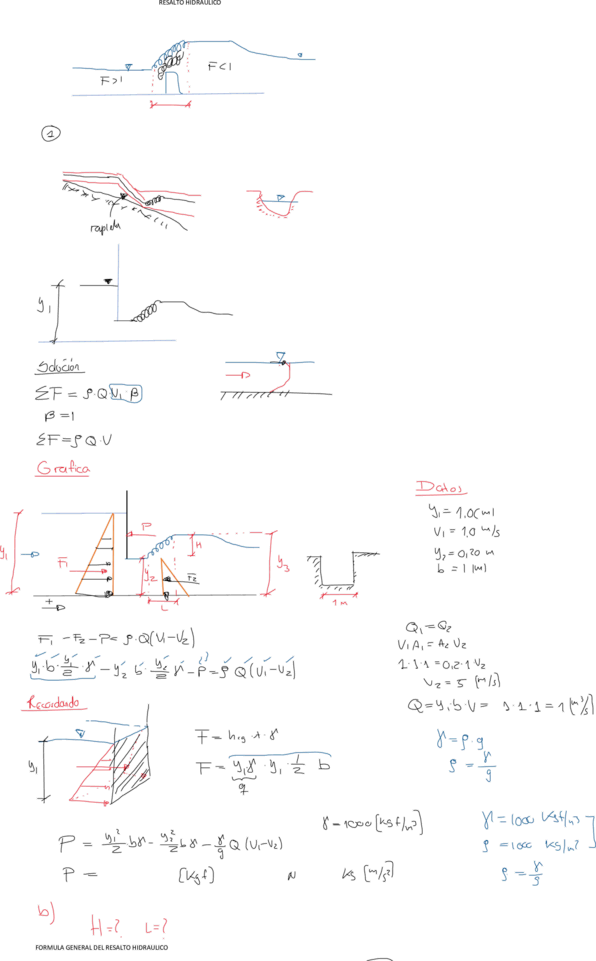 RESALTO HIDRAULICO
F>1
F<1
1
rapida
y1
Solución
ΣF = ρ·Q V1 β
β = 1
ΣF = ρ Q·V
Grafica
Datos
y1 = 1.0 [m]
V1 = 1,0 m/s
y2 = 0,20 m
b = 1 [m]
P
H
y1
F1
y2
F2
y3
L
1 m
+
F1 - F2 - P = ρ·Q(V1-V2)
y1·b·y1/2·γ - y2·b·y2/2·γ - P = ρ Q (V1-V2)
Q1 = Q2
V1A1 = A2 V2
1·1·1 = 0,2·1 V2
V2 = 5 [m/s]
Q = y1·b·V = 1·1·1 = 1 [m³/s]
Recordando
y1
F = hcg·A·γ
F = y1γ·y1·1/2 b
q
γ = ρ·g
ρ = γ/g
γ = 1000 [kgf/m³]
P = y1²/2 bγ - y2²/2 bγ - γ/g Q (V1-V2)
P = [kgf] N kg [m/s²]
γ = 1000 kgf/m³
ρ = 1000 kg/m³
ρ = γ/g
b)
H=? L=?
FORMULA GENERAL DEL RESALTO HIDRAULICO